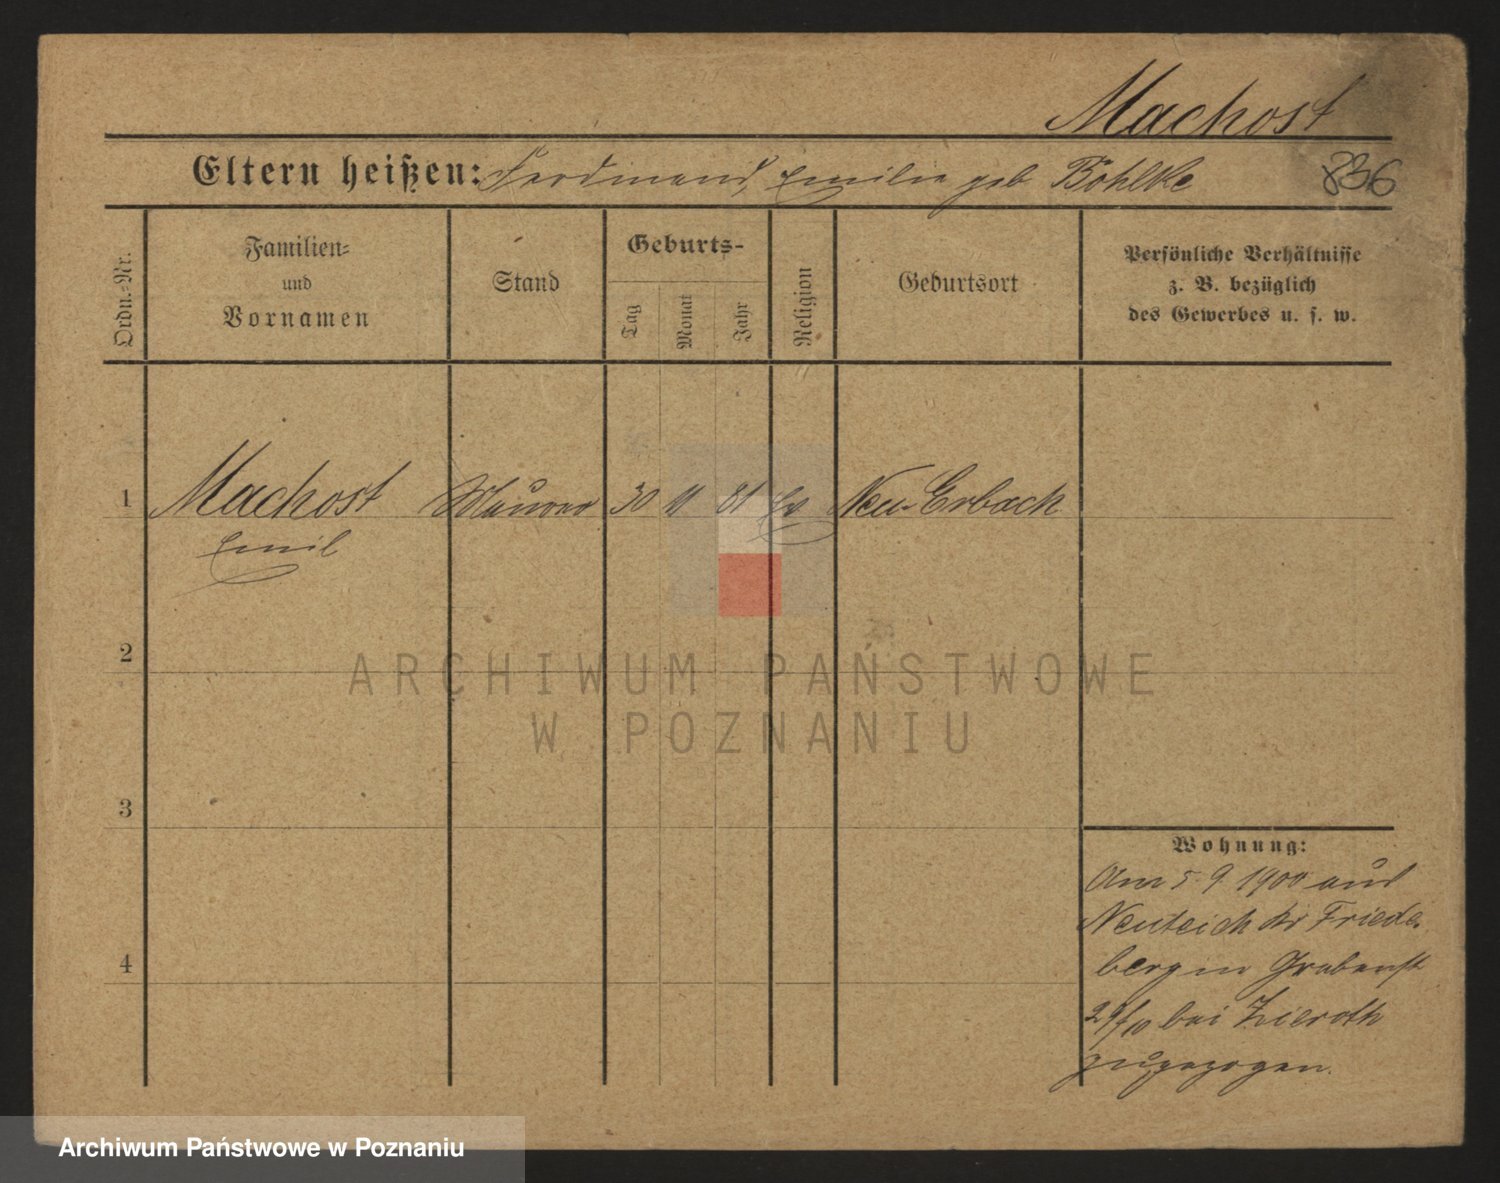 Machost
Eltern heißen: Ferdinand, Emilie geb Böhlke
836
Ordn.-Nr.
Familien-
und
Vornamen
Stand
Geburts-
Tag
Monat
Jahr
Religion
Geburtsort
Persönliche Verhältnisse
z. B. bezüglich
des Gewerbes u. s. w.
1 Machost Maurer 30 11 81 Ev Neu-Erbach
Emil
2
ARCHIWUM PAŃSTWOWE
W POZNANIU
3
4
Wohnung:
Am 5. 9. 1900 aus
Neuteich Kr Friede-
berg in Grabenst
29/10 bei Zieroth
zugezogen.
Archiwum Państwowe w Poznaniu